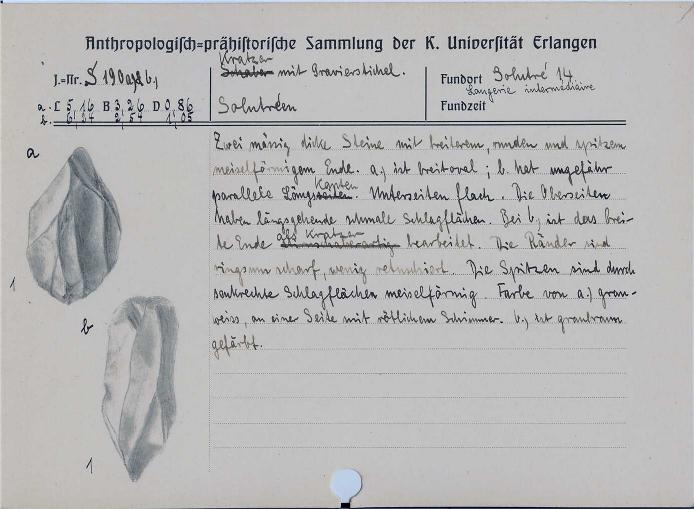 Anthropologisch=prähistorische Sammlung der K. Universität Erlangen
J.=Nr. S 190 a,b,
Kratzer
Schaber mit Gravierstichel.
Fundort Solutré 14
Laugerie intermediaire
a. L 5,16 B 3,26 D 0,86
b. 6,24 2,54 1,05
Solutréen
Fundzeit
Zwei mässig dicke Steine mit breiterem, runden und spitzem
meiselförmigem Ende. a.) ist breitoval; b. hat ungefähr
parallele Längsseiten. Kanten Unterseiten flach. Die Oberseiten
haben längsgehende schmale Schlagflächen. Bei b) ist das brei-
te Ende als Kratzer bearbeitet. Die Ränder sind
ringsum scharf, wenig retuschiert. Die Spitzen sind durch
senkrechte Schlagflächen meiselförmig. Farbe von a.) grau-
weiss, an einer Seite mit rötlichem Schimmer. b.) ist graubraun
gefärbt.
a
1
b
1